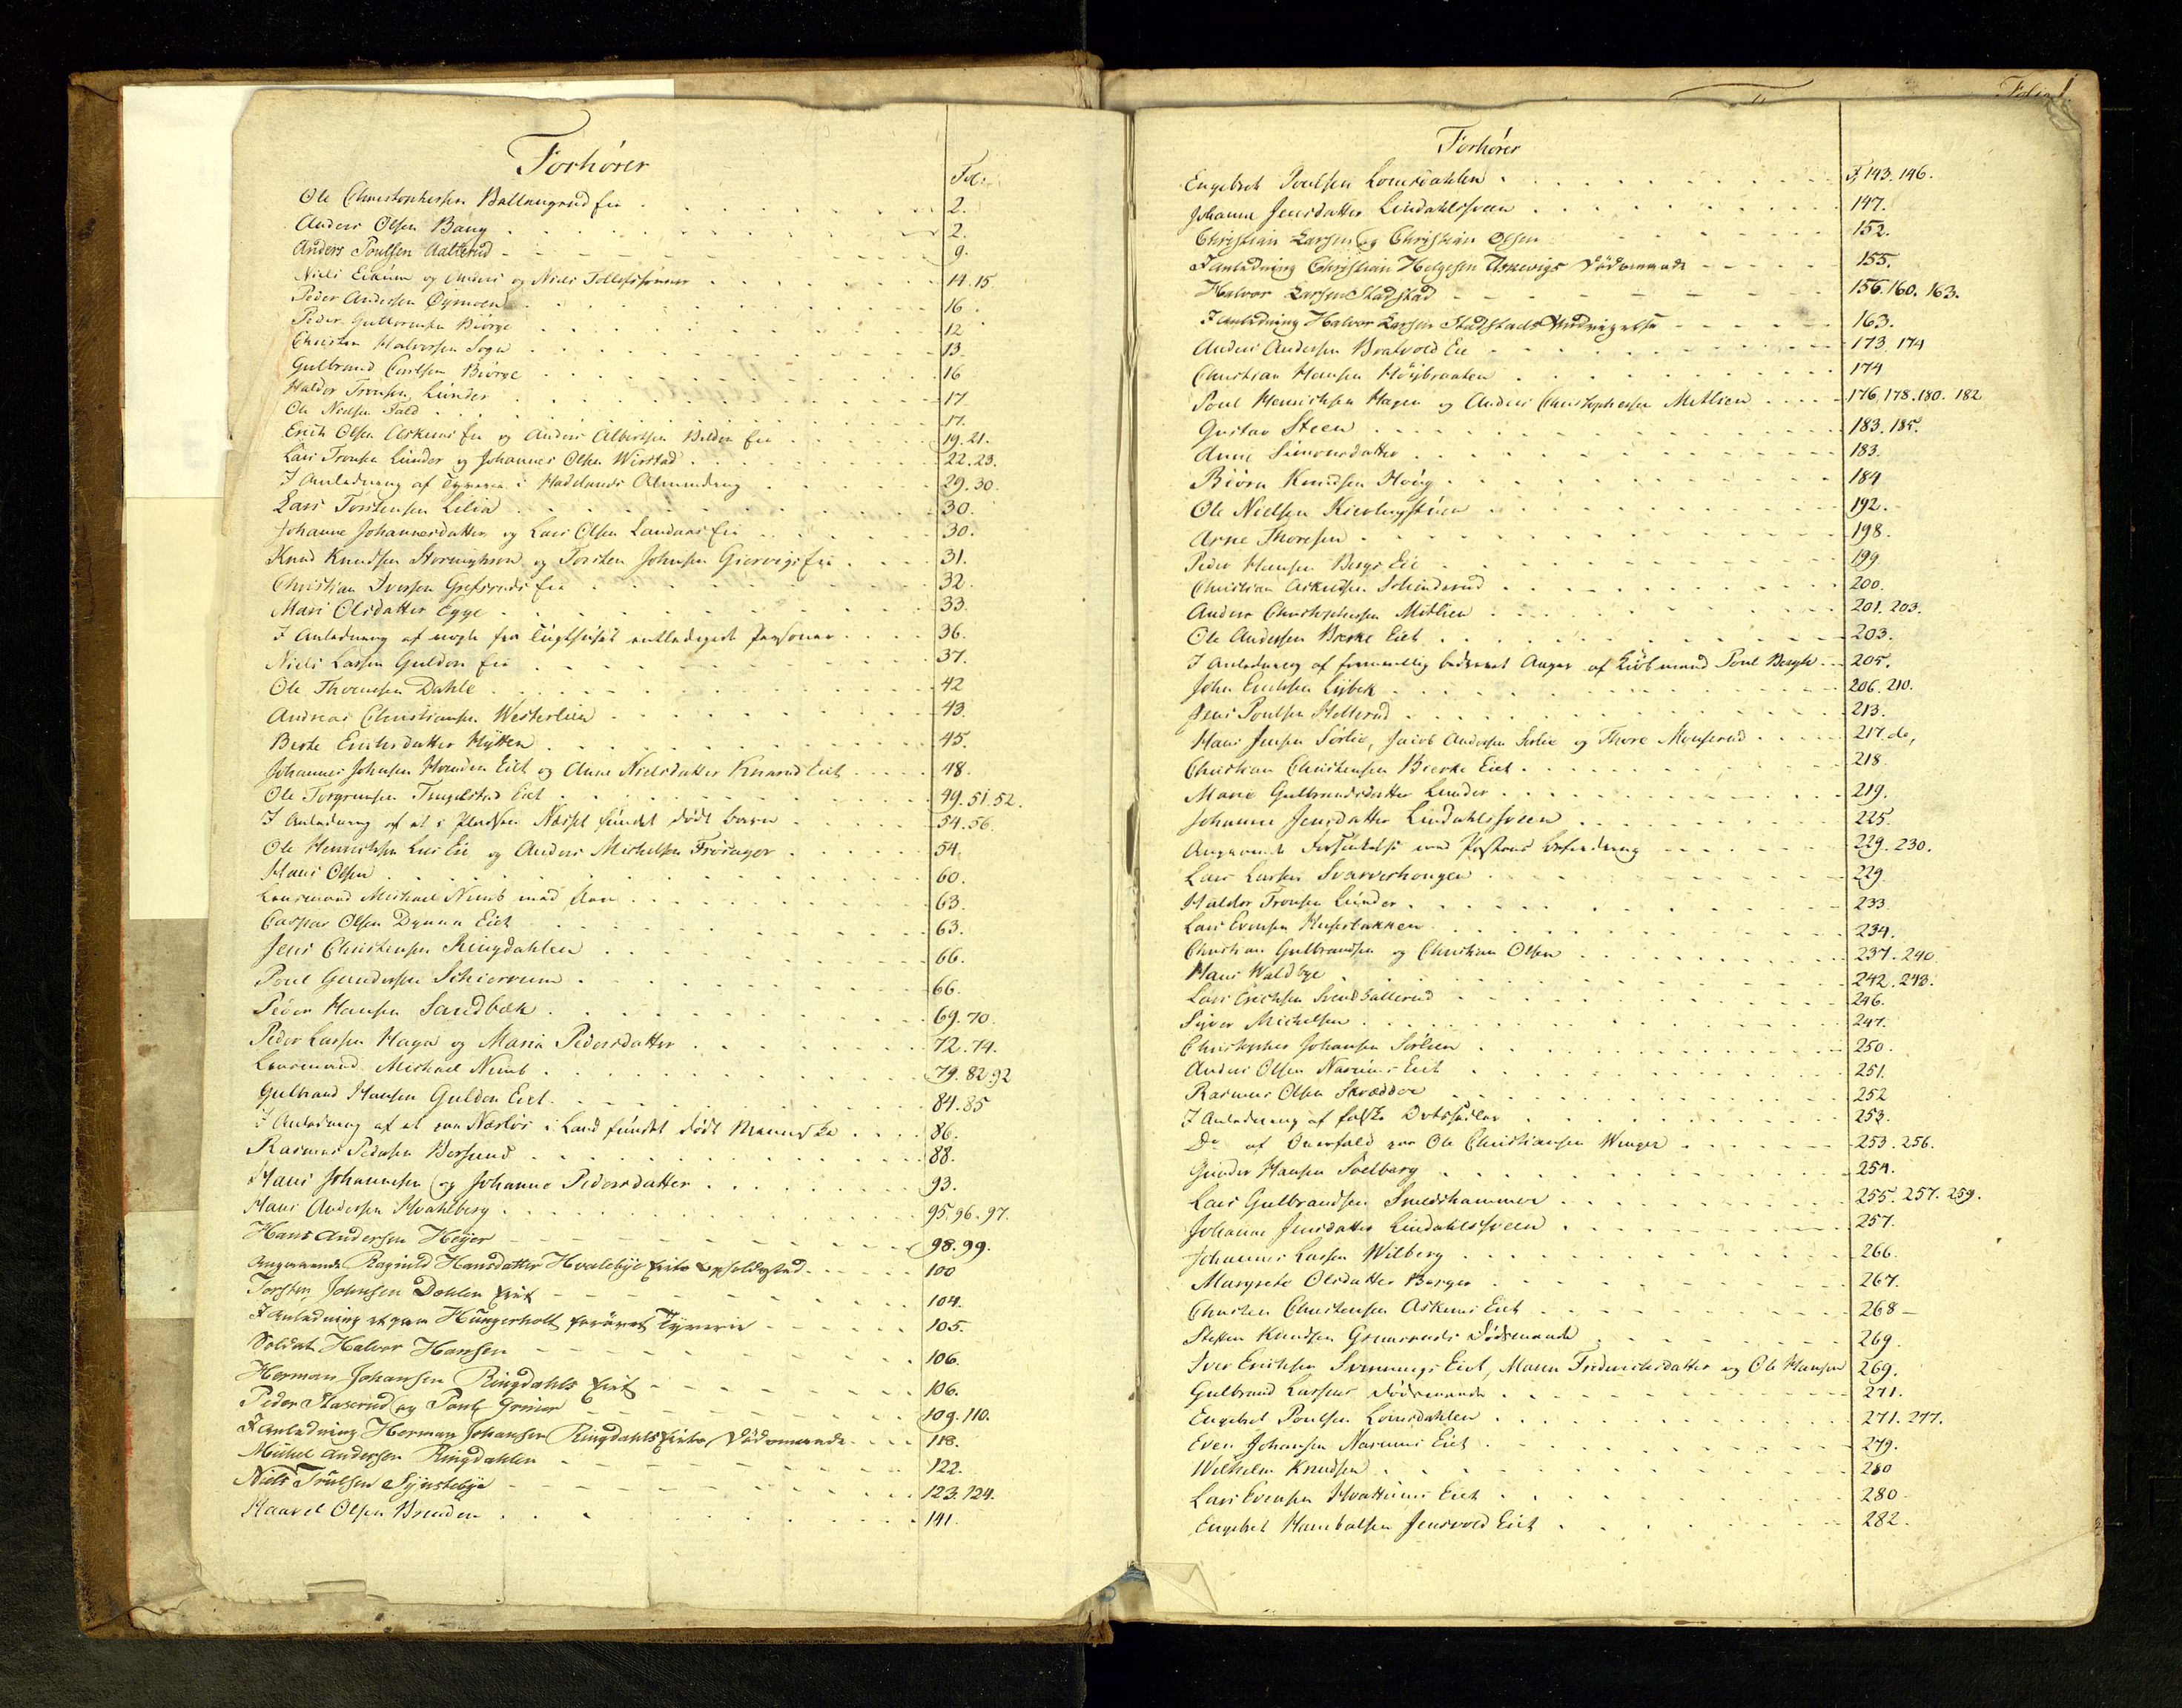 Forhører
Fol:
Ole Christophersen Ballangrud Eie 2.
Anders Olsen Bang 2.
Anders Poulsen Aalterud 9.
Niels Eckum og Anders og Niels 14. 15
Peder Andersen Øymoen 16.
Peder Gulbrandsen Biørge 12
Christen Halvorsen Sogn 13.
Gulbrand Carlsen Biørge 16
Haldor Tronsen Lunder 17
Ole Nielsen Fald 17.
Erich Olsen Askums Eie og Anders Albertsen Eie 19. 21.
Lars Tronsen Lunder og Johannes Olsen Wirstad 22. 23.
I Anledning af Tyverie i Hadelands Almending 29. 30.
Lars Torstensen Lilia 30.
Johanne Johannesdatter og Lars Olsen Landaas Eie 30.
Knud Knudsen og Torsten Johnsen Giervigs Eie 31.
Christian Iversen Grefsruds Eie 32.
Mari Olsdatter Egge 33.
I Anledning af nogle fra Tugthuset entledigede Personer 36.
Niels Larsen Gulden Eie 37.
Ole Thoresen Dahle 42
Andreas Christiansen Westerlien 43.
Berte Erichsdatter Hytten 45.
Johannes Johnsen Eiet og Anne Nielsdatter Knarud Eiet 48.
Ole Torgrimsen Tingelstad Eiet 49. 51. 52.
I Anledning af et i Pladsen Næsset fundet dødt Barn 54. 56.
Ole Henrichsen Lies Eie og Anders Michelsen Frøsager 54.
Hans Olsen 60.
Lensmand Michael Nimb med flere 63.
Caspar Olsen Dynna Eiet 63.
Jens Christensen Ringdahlen 66.
Poul Gundersen Schiervum 66.
Peder Hansen Sandbæk 69. 70.
Peder Larsen Haga og Maria Pedersdatter 72. 74.
Lensmand Michael Nimb 79. 82. 92
Gulbrand Hansen Gulden Eiet 84. 85
I Anledning af et paa i Land fundet dødt Menneske 86.
Rasmus Pedersen Bersund 88.
Hans Johannesen og Johanne Pedersdatter 93.
Hans Andersen Hvahlberg 95. 96. 97.
Hans Andersen Heyer 98. 99.
Angaaende Ragnild Hansdatter Hvalebye Eiets Opholdsted 100
Torsten Johnsen Dæhlen Eiet 104.
I Anledning et paa Hungerholt forøvet Tyverie 105.
Soldat Halvor Hansen 106.
Herman Johansen Ringdahls Eiet 106.
Peder Haserud og Poul 109. 110.
I Anledning Herman Johansen Ringdahls Eiets Dødsmaade 118.
Michel Andersen Ringdahlen 122.
Niels Trulsen Synstebye 123. 124.
Haavel Olsen Brenden 141.
Folio 1
Forhører
Engebret Poulsen Lomsdahlen F. 143. 146.
Johanne Jensdatter Lindahlssveen 147.
Christian Larsen og Christian Olsen 152.
I Anledning Christian Helgesen Askevigs Dødsmaade 155.
Halvor Larsen Stadstad 156. 160. 163.
I Anledning Halvor Larsen Stadstads Undvigelse 163.
Anders Andersen Bratvold Eie 173. 174
Christian Hansen Høybraaten 174
Poul Henrichsen Hagen og Anders Christophersen Metlien 176. 178. 180. 182
Gustav Steen 183. 185.
Anne Simensdatter 183.
Biørn Knudsen Houg 184
Ole Nielsen 192.
Arne Thoresen 198.
Peder Hansen Bergs Eie 199
Christian Askildsen 200.
Anders Christophersen Metlien 201. 203.
Ole Andersen Bierke Eiet 203.
I Anledning af formentlig bedrevet Aager af Kiøbmand Poul Bergh 205.
John Erichsen Lybek 206. 210.
Jens Poulsen Holterud 213.
Hans Jensen Sørlie, Jacob Andersen Sørlie og Thore 217. do,
Christian Christensen Bierke Eiet 218
Marie Gulbrandsdatter Lunder 219.
Johanne Jensdatter Lindahlssveen 225.
Angaaende Forsinkelse med Postens Befordring 229. 230.
Lars Larsen Svarverhougen 229
Haldor Tronsen Lunder 233
Lars Evensen 234.
Christian Gulbrandsen og Christian Olsen 237. 240
Hans Waldbye 242. 243.
Lars Erichsen Svendsallerud 246.
Syver Michelsen 247.
Christopher Johansen Sørlien 250.
Anders Olsen Narums Eiet 251.
Rasmus Olsen Skrædder 252
I Anledning af falske Ortssedler 253.
Do af Overfald paa Ole Christiansen Winger 253. 256.
Gunder Hansen Soelberg 254.
Lars Gulbrandsen Smedshammer 255. 257. 259.
Johanne Jensdatter Lindahlssveen 257.
Johannes Larsen Wilberg 266.
Margrete Olsdatter Berger 267.
Christen Christensen Askums Eiet 268 -
Steffen Knudsen Dødsmaade 269.
Iver Erichsen Svinnings Eiet, Maren Friderichsdatter og Ole Hansen 269.
Gulbrand Larsens Dødsmaade 271.
Engebret Poulsen Lomsdahlen 271. 277.
Even Johansen Narums Eiet 279.
Wilhelm Knudsen 280
Lars Evensen Hvattums Eiet 280
Engebret Hanibalsen Jensvold Eiet 282.